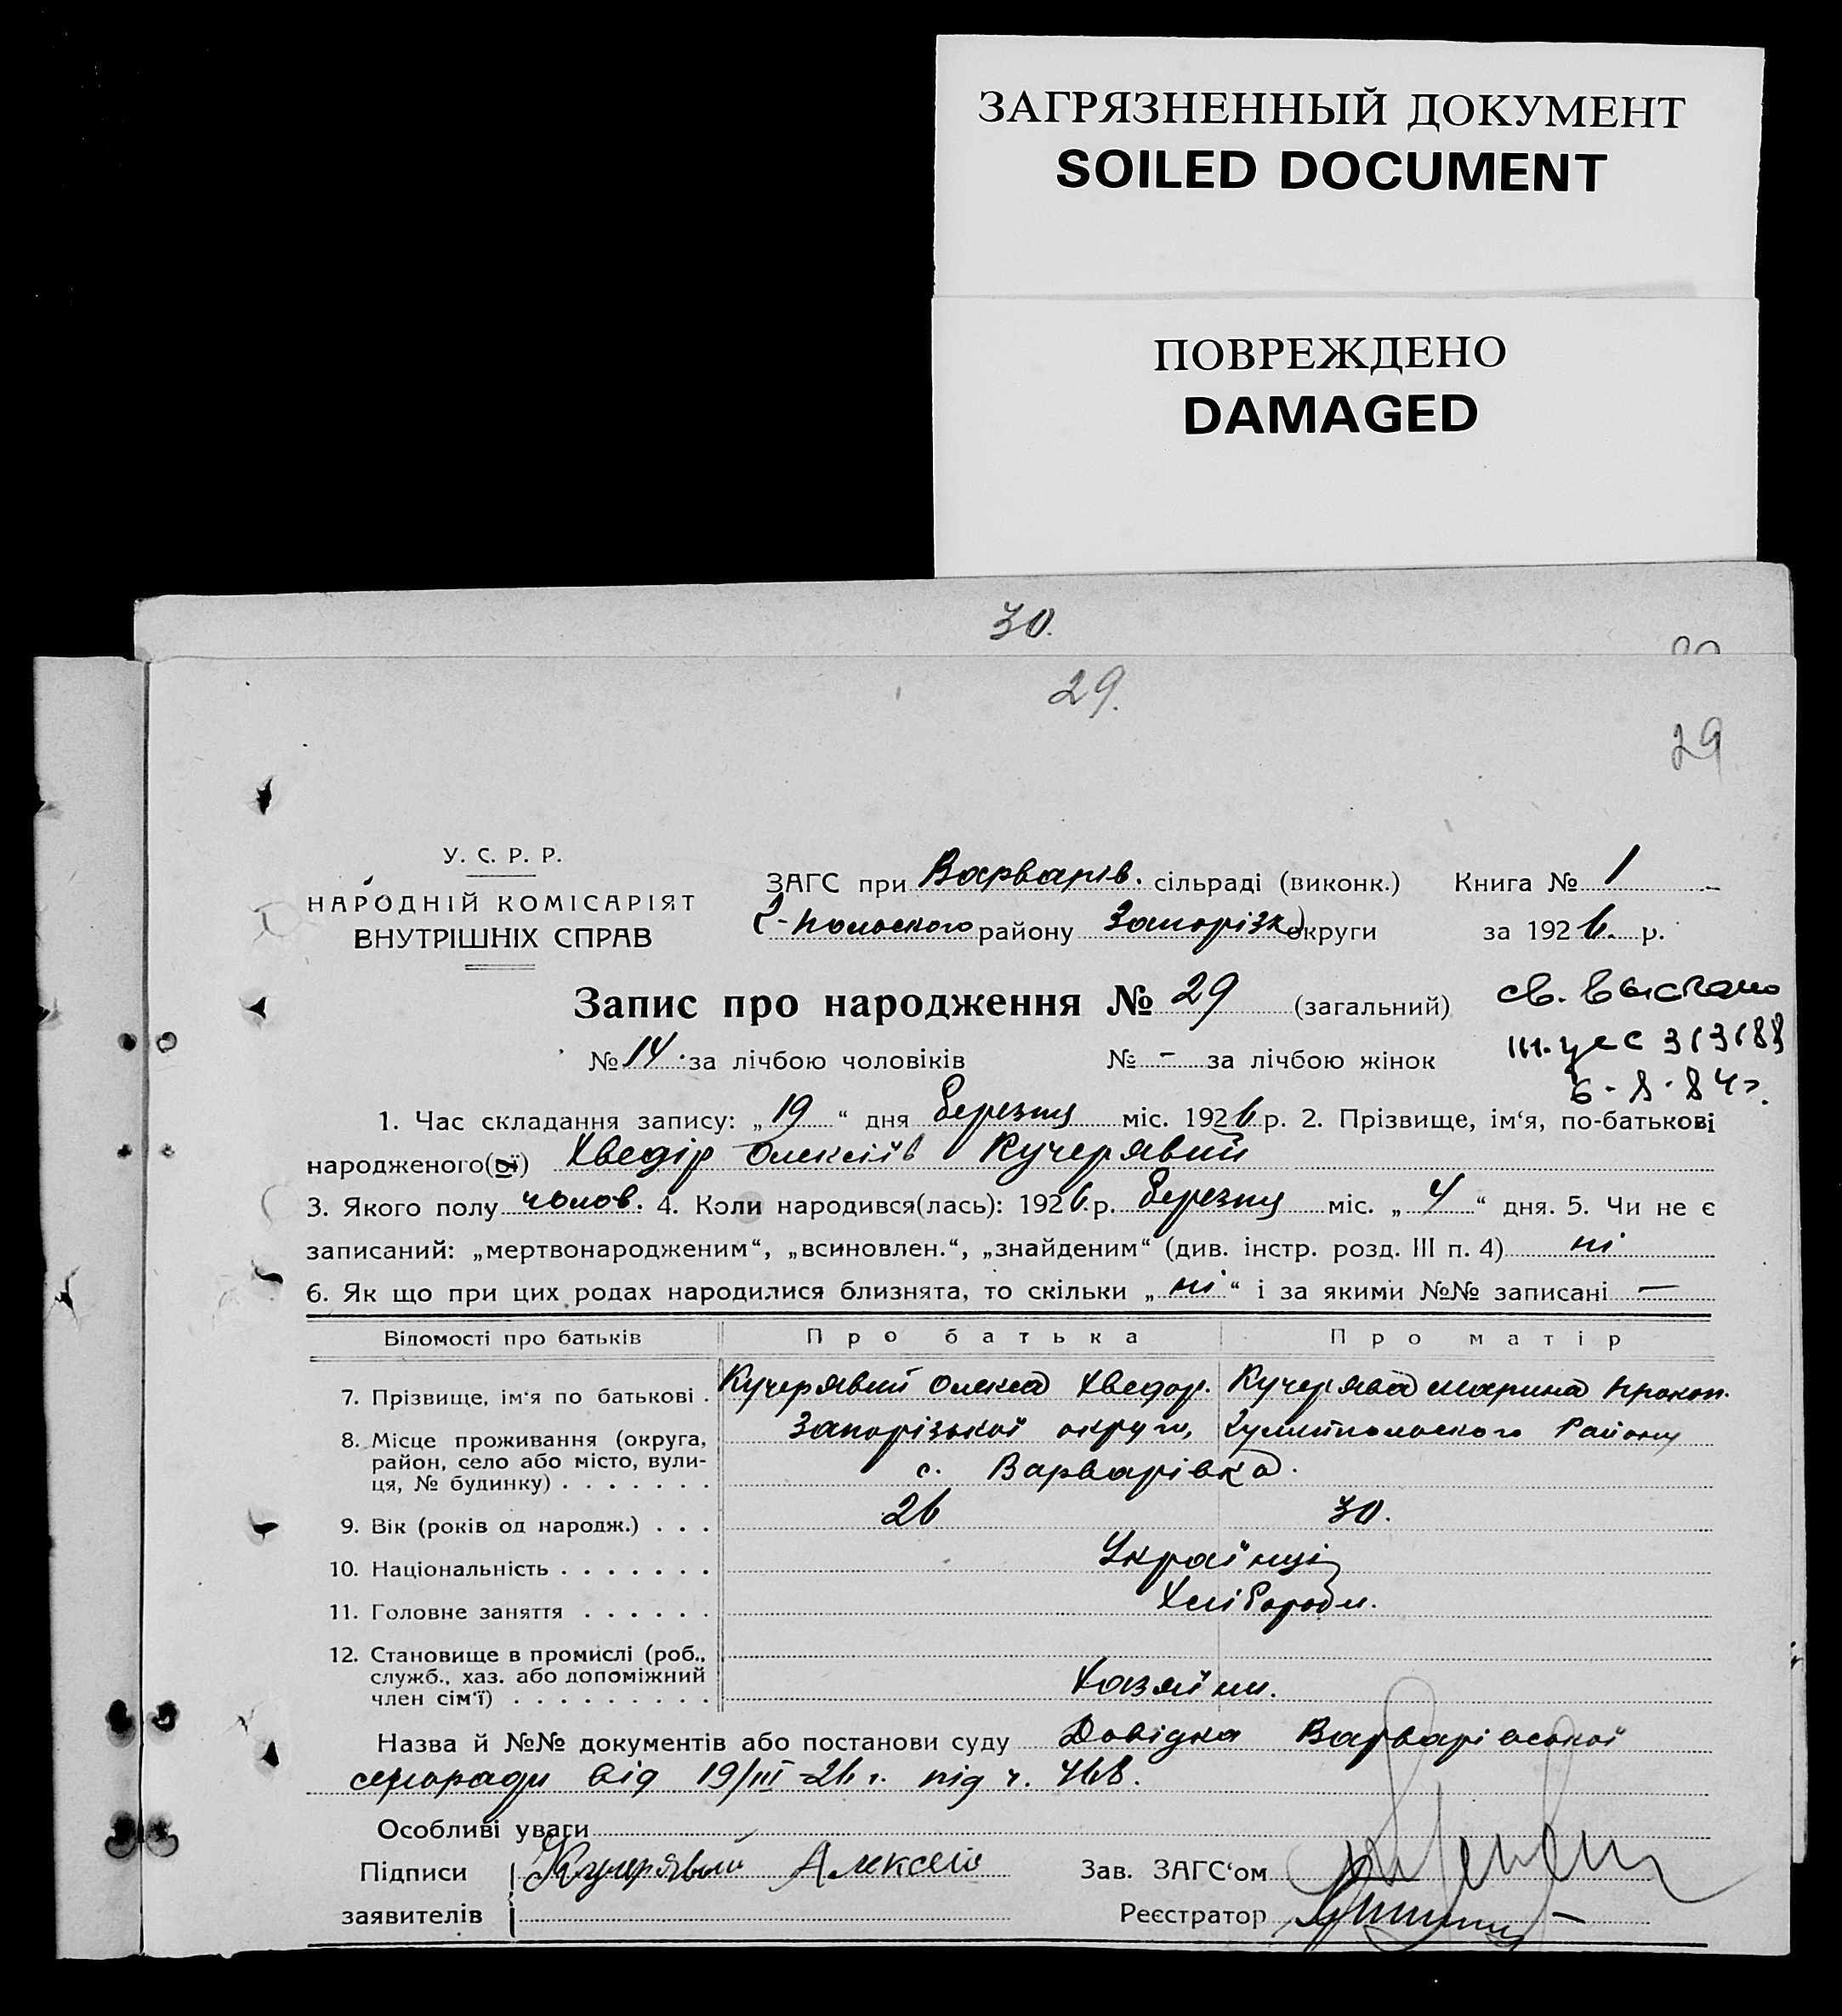 ЗАГРЯЗНЕННЫЙ ДОКУМЕНТ
SOILED DOCUMENT
ПОВРЕЖДЕНО
DAMAGED
30.
29.
29
У. С. Р. Р.
НАРОДНІЙ КОМІСАРІЯТ
ВНУТРІШНІХ СПРАВ
ЗАГС при Варварів. сільраді (виконк.) Книга № 1
Г-Польского району Запорізк округи за 1926. р.
Запис про народження № 29 (загальний)
св. выслано
6-8-84г.
№ 14. за лічбою чоловіків № - за лічбою жінок
1. Час складання запису: „19“ дня березня міс. 1926 р. 2. Прізвище, ім‘я, по-батькові
народженого(ої) Хведір Олексіїв Кучерявий
3. Якого полу чолов. 4. Коли народився(лась): 1926 р. березня міс. „4“ дня. 5. Чи не є
записаний: „мертвонародженим“, „всиновлен.“, „знайденим“ (див. інстр. розд. III п. 4) ні
6. Як що при цих родах народилися близнята, то скільки „ні“ і за якими №№ записані —
Відомості про батьків Про батька Про матір
7. Прізвище, ім‘я по батькові . Кучерявий Олекса Хведор. Кучерява Марина Прокоп.
8. Місце проживання (округа, район, село або місто, вули-ця, № будинку) . . . . . . . Запорізької округи, Гуляйпольского Району
с. Варварівка.
9. Вік (років од народж.) . . . 26 30.
10. Національність . . . . . . . Українці
11. Головне заняття . . . . . . Хлібороби.
12. Становище в промислі (роб., служб., хаз. або допоміжний член сім‘ї) . . . . . . . . . Хазяїни.
Назва й №№ документів або постанови суду Довідка Варварівської
сільради від 19/III-26 г. під ч. 468.
Особливі уваги
Підписи Кучерявый Алексей Зав. ЗАГС‘ом
заявителів Реєстратор